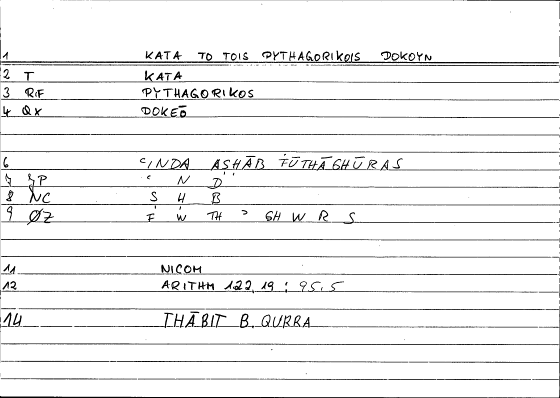 1 KATA TO TOIS PYTHAGORIKOIS DOKOYN
2 T KATA
3 RF PYTHAGORIKOS
4 QX DOKEŌ
6 ʿINDA ASHĀB FŪTHĀGHŪRAS
7 JP ʿ N D
8 NC S H B
9 ØZ F W TH ʾ GH W R S
11 NICOM
12 ARITHM 122,19 : 95,5
14 THĀBIT B. QURRA